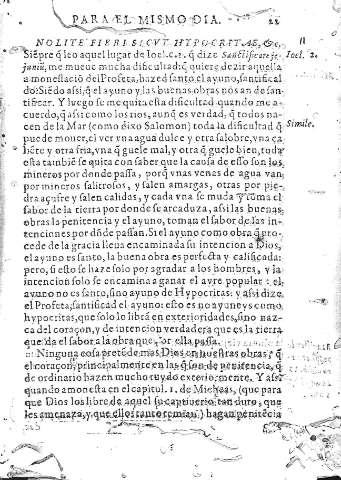 PARA EL MISMO DIA. 22
NOLITE FIERI SICVT HYPOCRITAE, &c.
Siẽpre q̃ leo aquel lugar de Ioel. c. 2. q̃ dize Sanctificate je- Ioel. 2.
juniũ, me mueue mucha dificultad q̃ quiere dezir aquella
amonestació del Profeta, hazed santo el ayuno, santificad
do. Siẽdo assi, q̃ el ayuno y las buenas obras nos an de san-
tificar. Y luego se me quita esta dificultad quando me a-
cuerdo, q̃ assi como los rios, aunq̃ es verdad, q̃ todos na-
cen de la Mar (como dixo Salomon) toda la dificultad q̃ Simile.
puede mouer, el ver vna agua dulce y otra salobre, vna ca
liẽte y otra fria, vna q̃ guele mal, y otra q̃ guele bien, toda
esta tambiẽ se quita con saber que la causa de esso son los
mineros por donde passa, porq̃ vnas venes de agua van
por mineros salitrosos, y salen amargas, otras por pie-
dra açufre y salen calidas, y cada vna se muda y toma el
sabor de la tierra por donde se arcaduza, assi las buenas
obras la penitencia y el ayuno, toman el sabor de las in-
tenciones por dõde passan. Si el ayuno como obra q̃ pro-
cede de la gracia lleua encaminada su intencion a Dios,
el ayuno es santo, la buena obra es perfecta y calificada:
pero, si esto se haze solo por agradar a los hombres, y la
intencion solo se encamina a ganar el ayre popular: el
ayuno no es santo, sino ayuno de Hypocritas: y assi dize
el Profeta, santificad el ayuno: esto es no ayuneys como
hypocritas, que solo lo librã en exterioridades, sino naz-
ca del coraçon, y de intencion verdadera que es la tierra
que da el sabor a la obra que por ella passa.
Ninguna cosa pretẽde mas Dios en nuestras obras, q̃
el coraçon, principalmente en las q̃ son de penitencia, q̃
de ordinario hazen mucho ruydo exteriormente. Y assi
quando amonesta en el capitul. 1. de Micheas, (que para
que Dios los libre de aquel captiuerio tan duro, que
les amenaza, y que ellos tanto temian) hagan penitẽcia